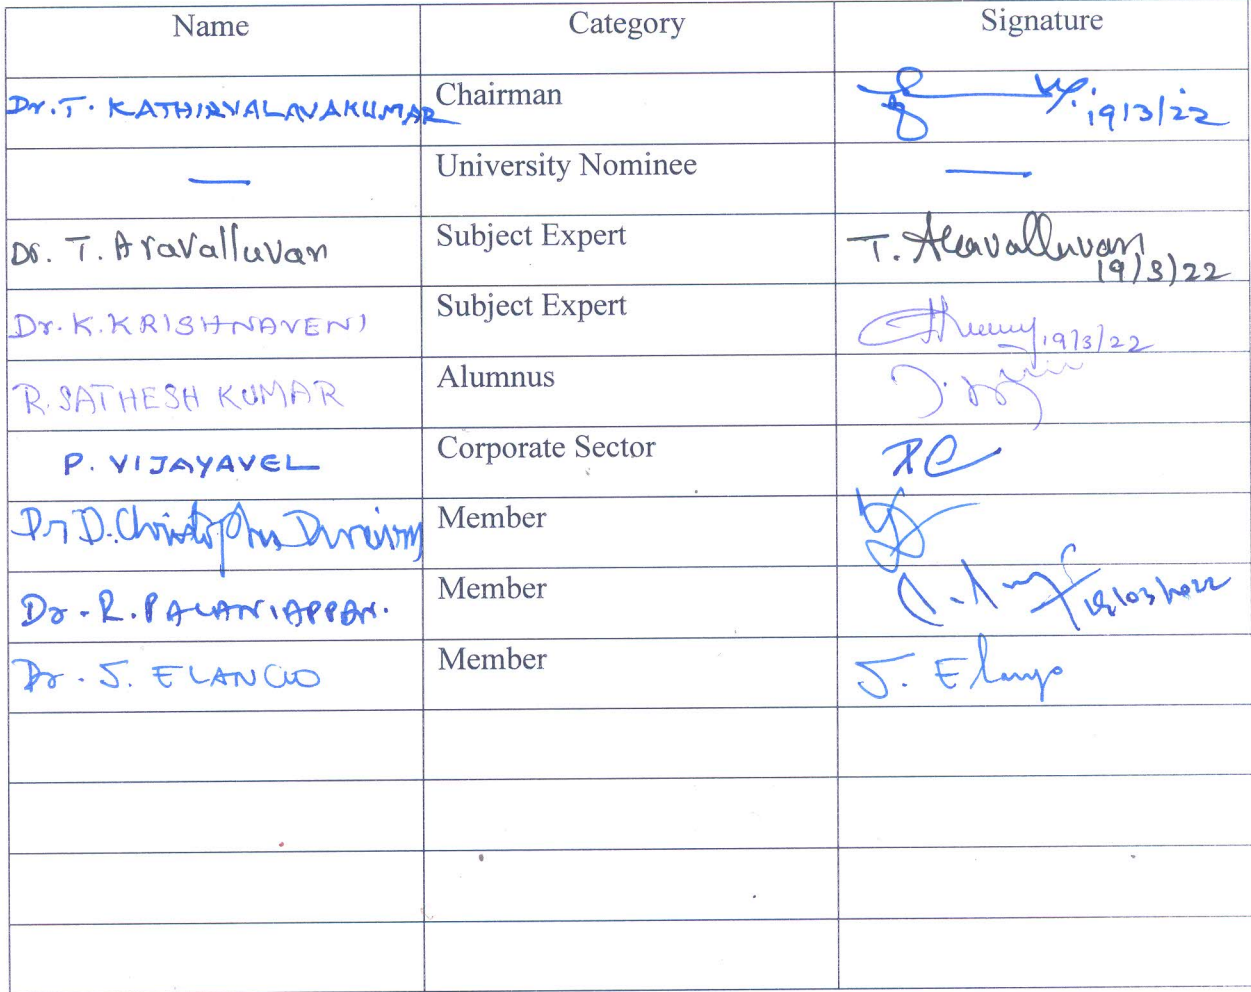 Name Category Signature
Dr. T. KATHIRVALAVAKUMAR Chairman 19/3/22
— University Nominee —
Dr. T. Aravalluvan Subject Expert T. Aravalluvan 19/3/22
Dr. K. KRISHNAVENI Subject Expert 19/3/22
R. SATHESH KUMAR Alumnus
P. VIJAYAVEL Corporate Sector
Dr D. Christopher Durairaj Member
Dr. R. PALANIAPPAN. Member
Dr. J. ELANGO Member J. Elango